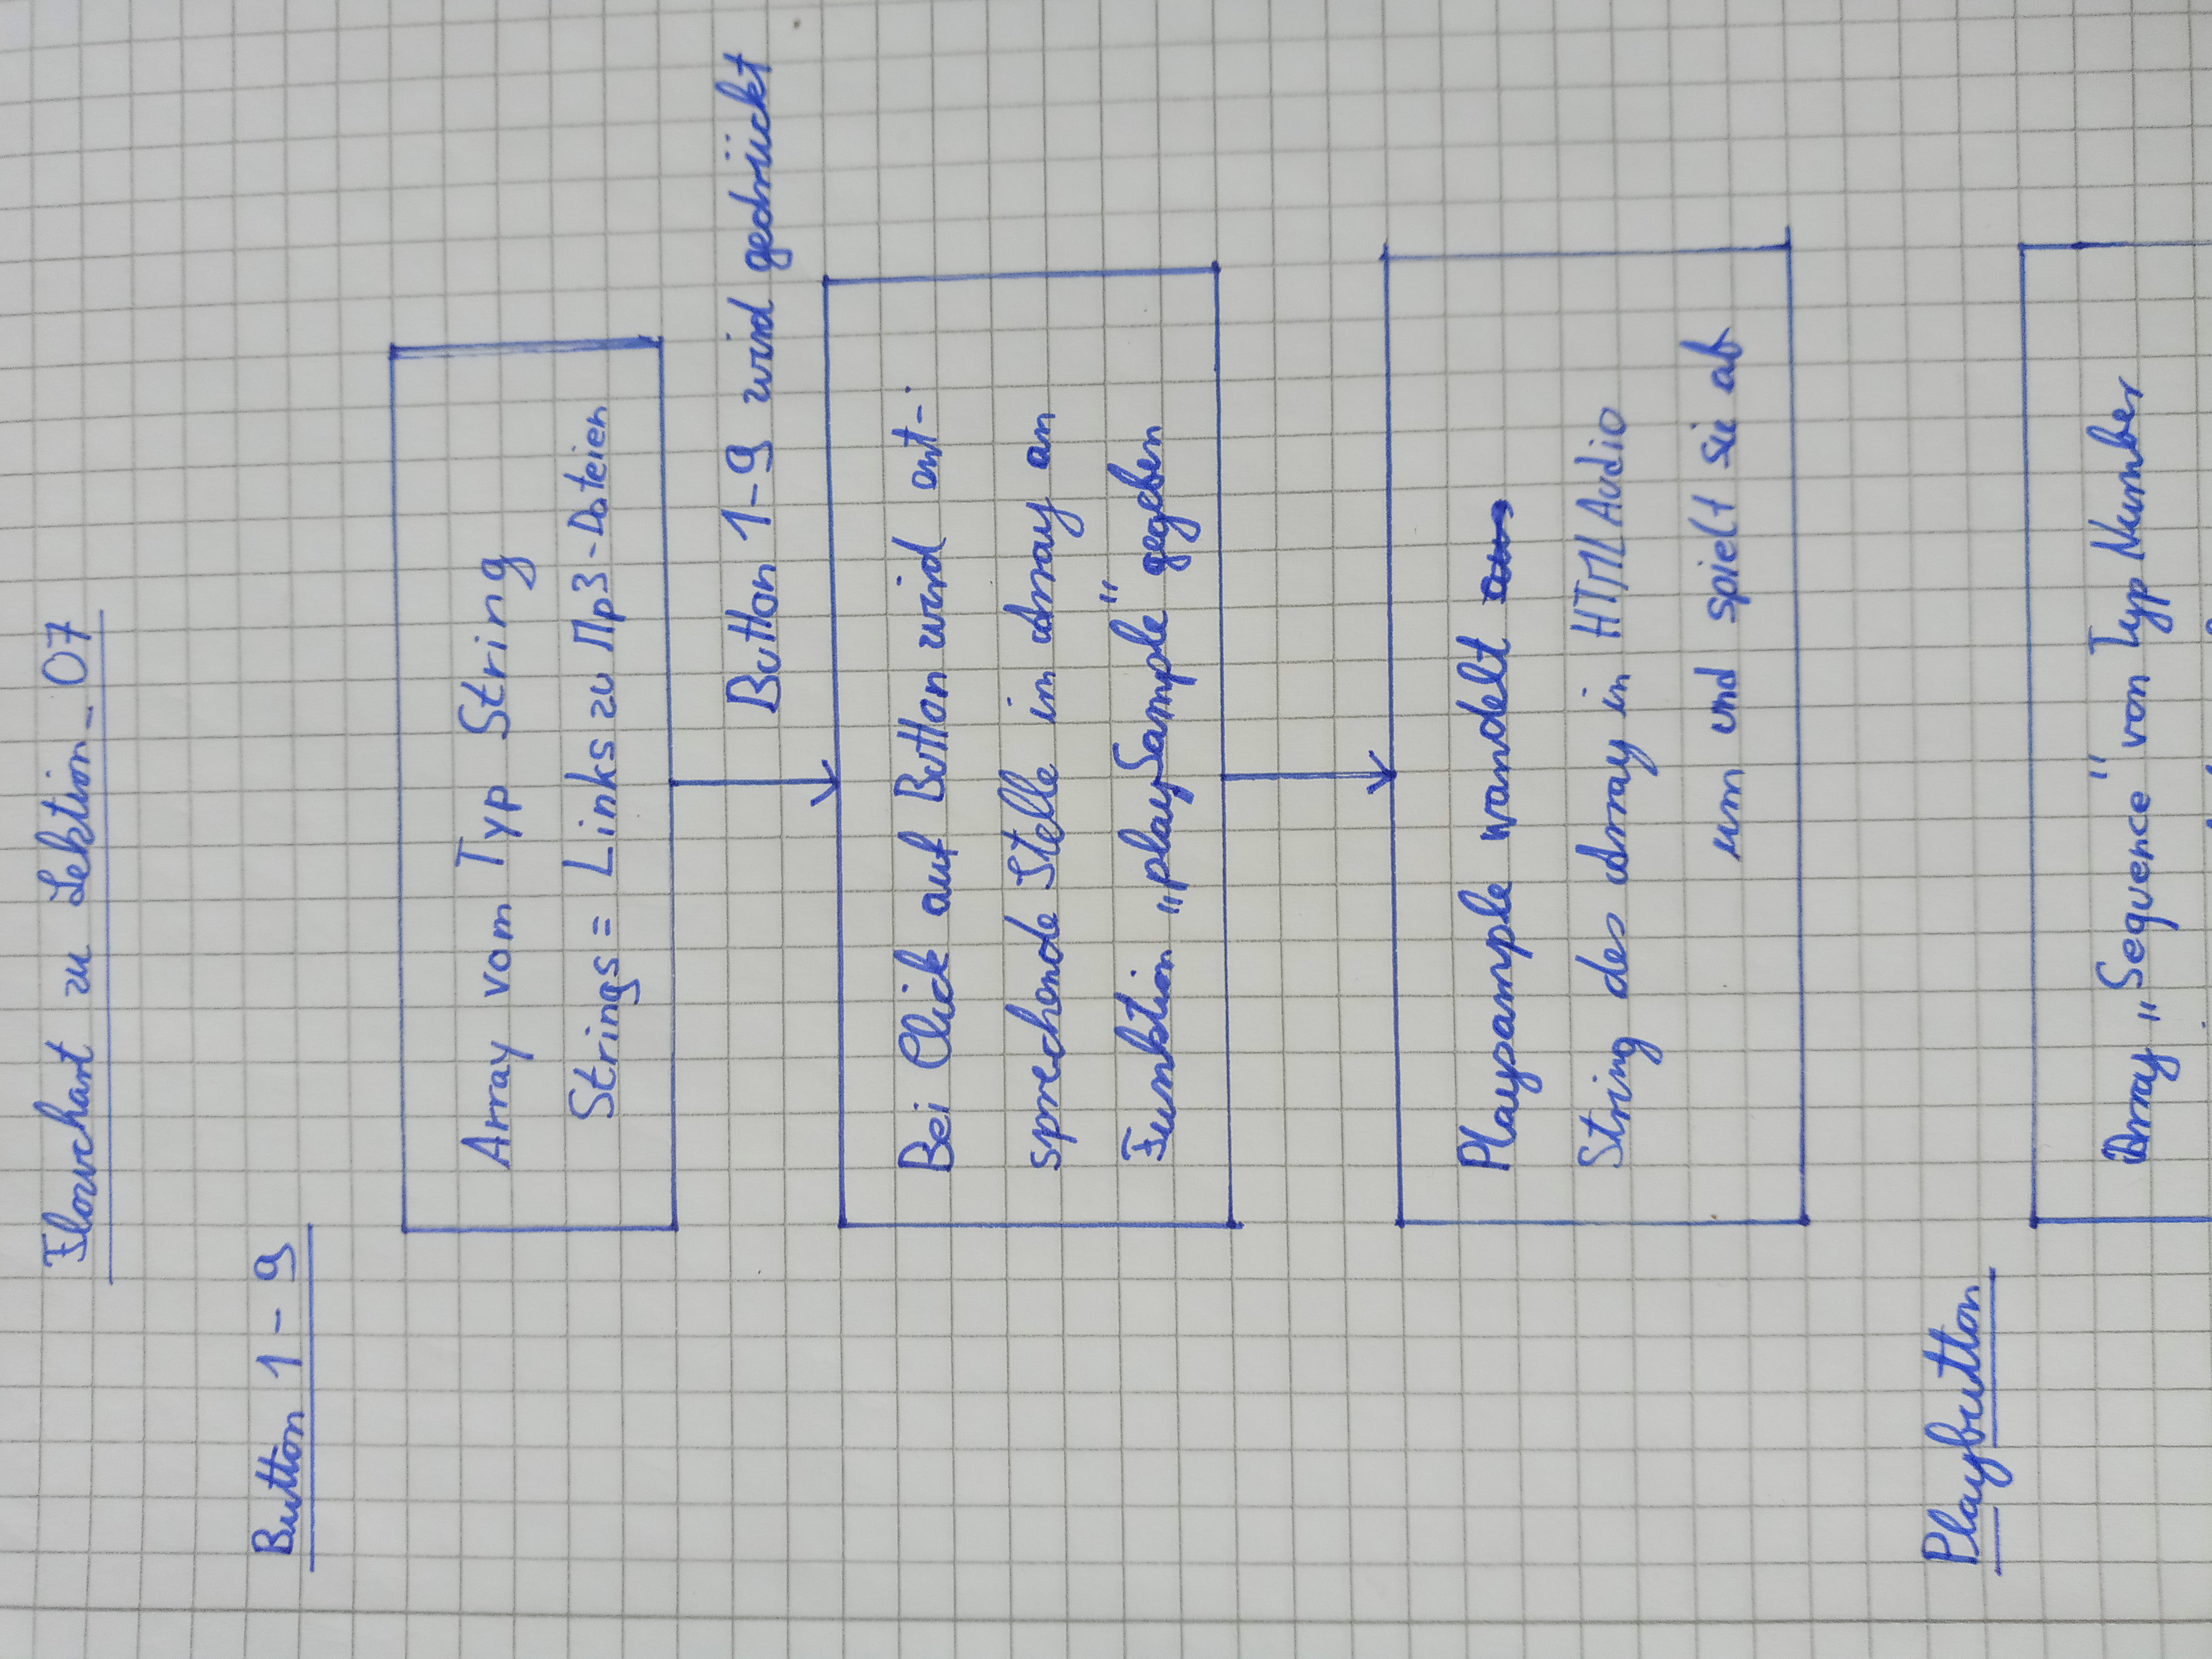 Flowchart zu Lektion_07
Button 1-9
Array vom Typ String
Strings = Links zu Mp3-Dateien
Button 1-9 wird gedrückt
Bei Click auf Button wird ent-
sprechende Stelle im Array an
Funktion „playSample“ gegeben
Playsample wandelt aus
String des Array in HTML Audio
um und spielt sie ab
Playbutton
Array „Sequence“ von Typ Number